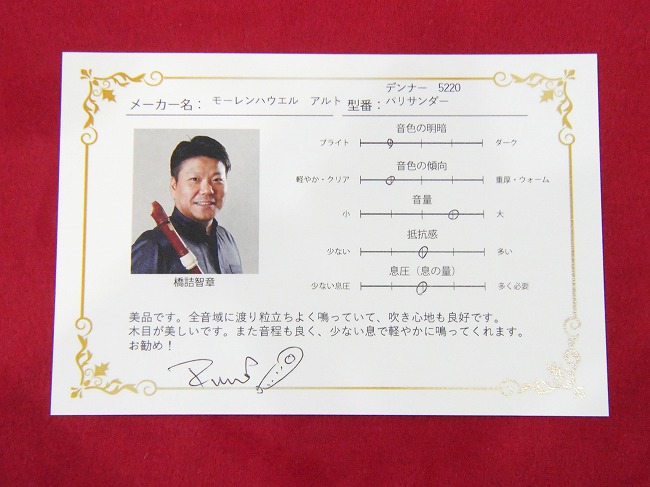 デンナー 5220
メーカー名： モーレンハウエル アルト 型番： パリサンダー
音色の明暗
ブライト ダーク
音色の傾向
軽やか・クリア 重厚・ウォーム
音量
小 大
抵抗感
少ない 多い
息圧（息の量）
少ない息圧 多く必要
橋詰智章
美品です。全音域に渡り粒立ちよく鳴っていて、吹き心地も良好です。
木目が美しいです。また音程も良く、少ない息で軽やかに鳴ってくれます。
お勧め！